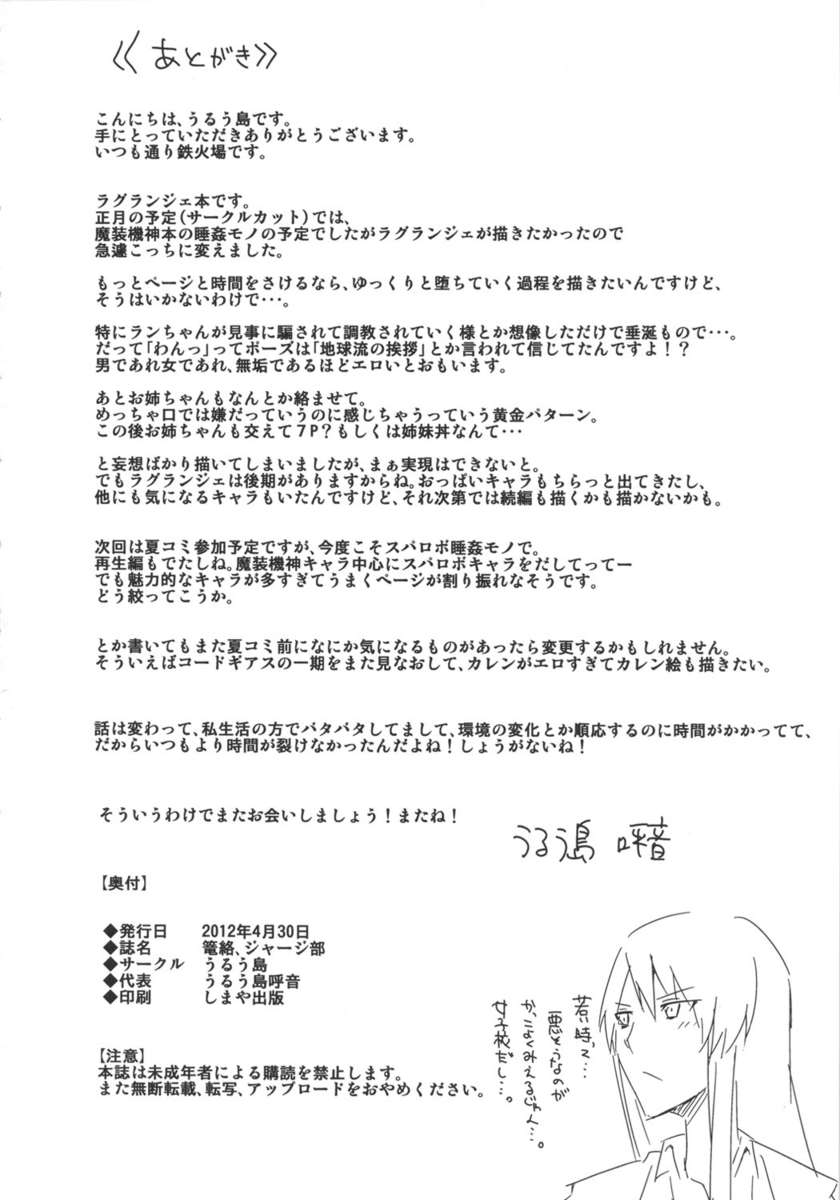 ≪ あとがき ≫
こんにちは、うるう島です。
手にとっていただきありがとうございます。
いつも通り鉄火場です。
ラグランジェ本です。
正月の予定(サークルカット)では、
魔装機神本の睡姦モノの予定でしたがラグランジェが描きたかったので
急遽こっちに変えました。
もっとページと時間をさけるなら、ゆっくりと堕ちていく過程を描きたいんですけど、
そうはいかないわけで・・・。
特にランちゃんが見事に騙されて調教されていく様とか想像しただけで垂涎もので・・・。
だって「わんっ」ってポーズは「地球流の挨拶」とか言われて信じてたんですよ!?
男であれ女であれ、無垢であるほどエロいとおもいます。
あとお姉ちゃんもなんとか絡ませて。
めっちゃ口では嫌だっていうのに感じちゃうっていう黄金パターン。
この後お姉ちゃんも交えて7P?もしくは姉妹丼なんて・・・
と妄想ばかり描いてしまいましたが、まぁ実現はできないと。
でもラグランジェは後期がありますからね。おっぱいキャラもちらっと出てきたし、
他にも気になるキャラもいたんですけど、それ次第では続編も描くかも描かないかも。
次回は夏コミ参加予定ですが、今度こそスパロボ睡姦モノで。
再生編もでたしね。魔装機神キャラ中心にスパロボキャラをだしてってー
でも魅力的なキャラが多すぎてうまくページが割り振れなそうです。
どう絞ってこうか。
とか書いてもまた夏コミ前になにか気になるものがあったら変更するかもしれません。
そういえばコードギアスの一期をまた見なおして、カレンがエロすぎてカレン絵も描きたい。
話は変わって、私生活の方でバタバタしてまして、環境の変化とか順応するのに時間がかかってて、
だからいつもより時間が裂けなかったんだよね!しょうがないね!
そういうわけでまたお会いしましょう!またね!
うるう島 呼音
【奥付】
◆発行日 2012年4月30日
◆誌名 篭絡、ジャージ部
◆サークル うるう島
◆代表 うるう島呼音
◆印刷 しまや出版
【注意】
本誌は未成年者による購読を禁止します。
また無断転載、転写、アップロードをおやめください。
若い時って…
悪そうなのが
かっこよくみえるじゃん…。
女子校だし…。